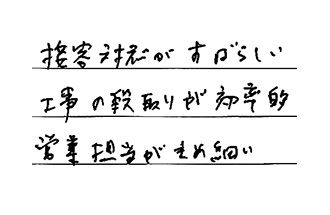 接客対応がすばらしい
工事の段取りが効率的
営業担当がきめ細い